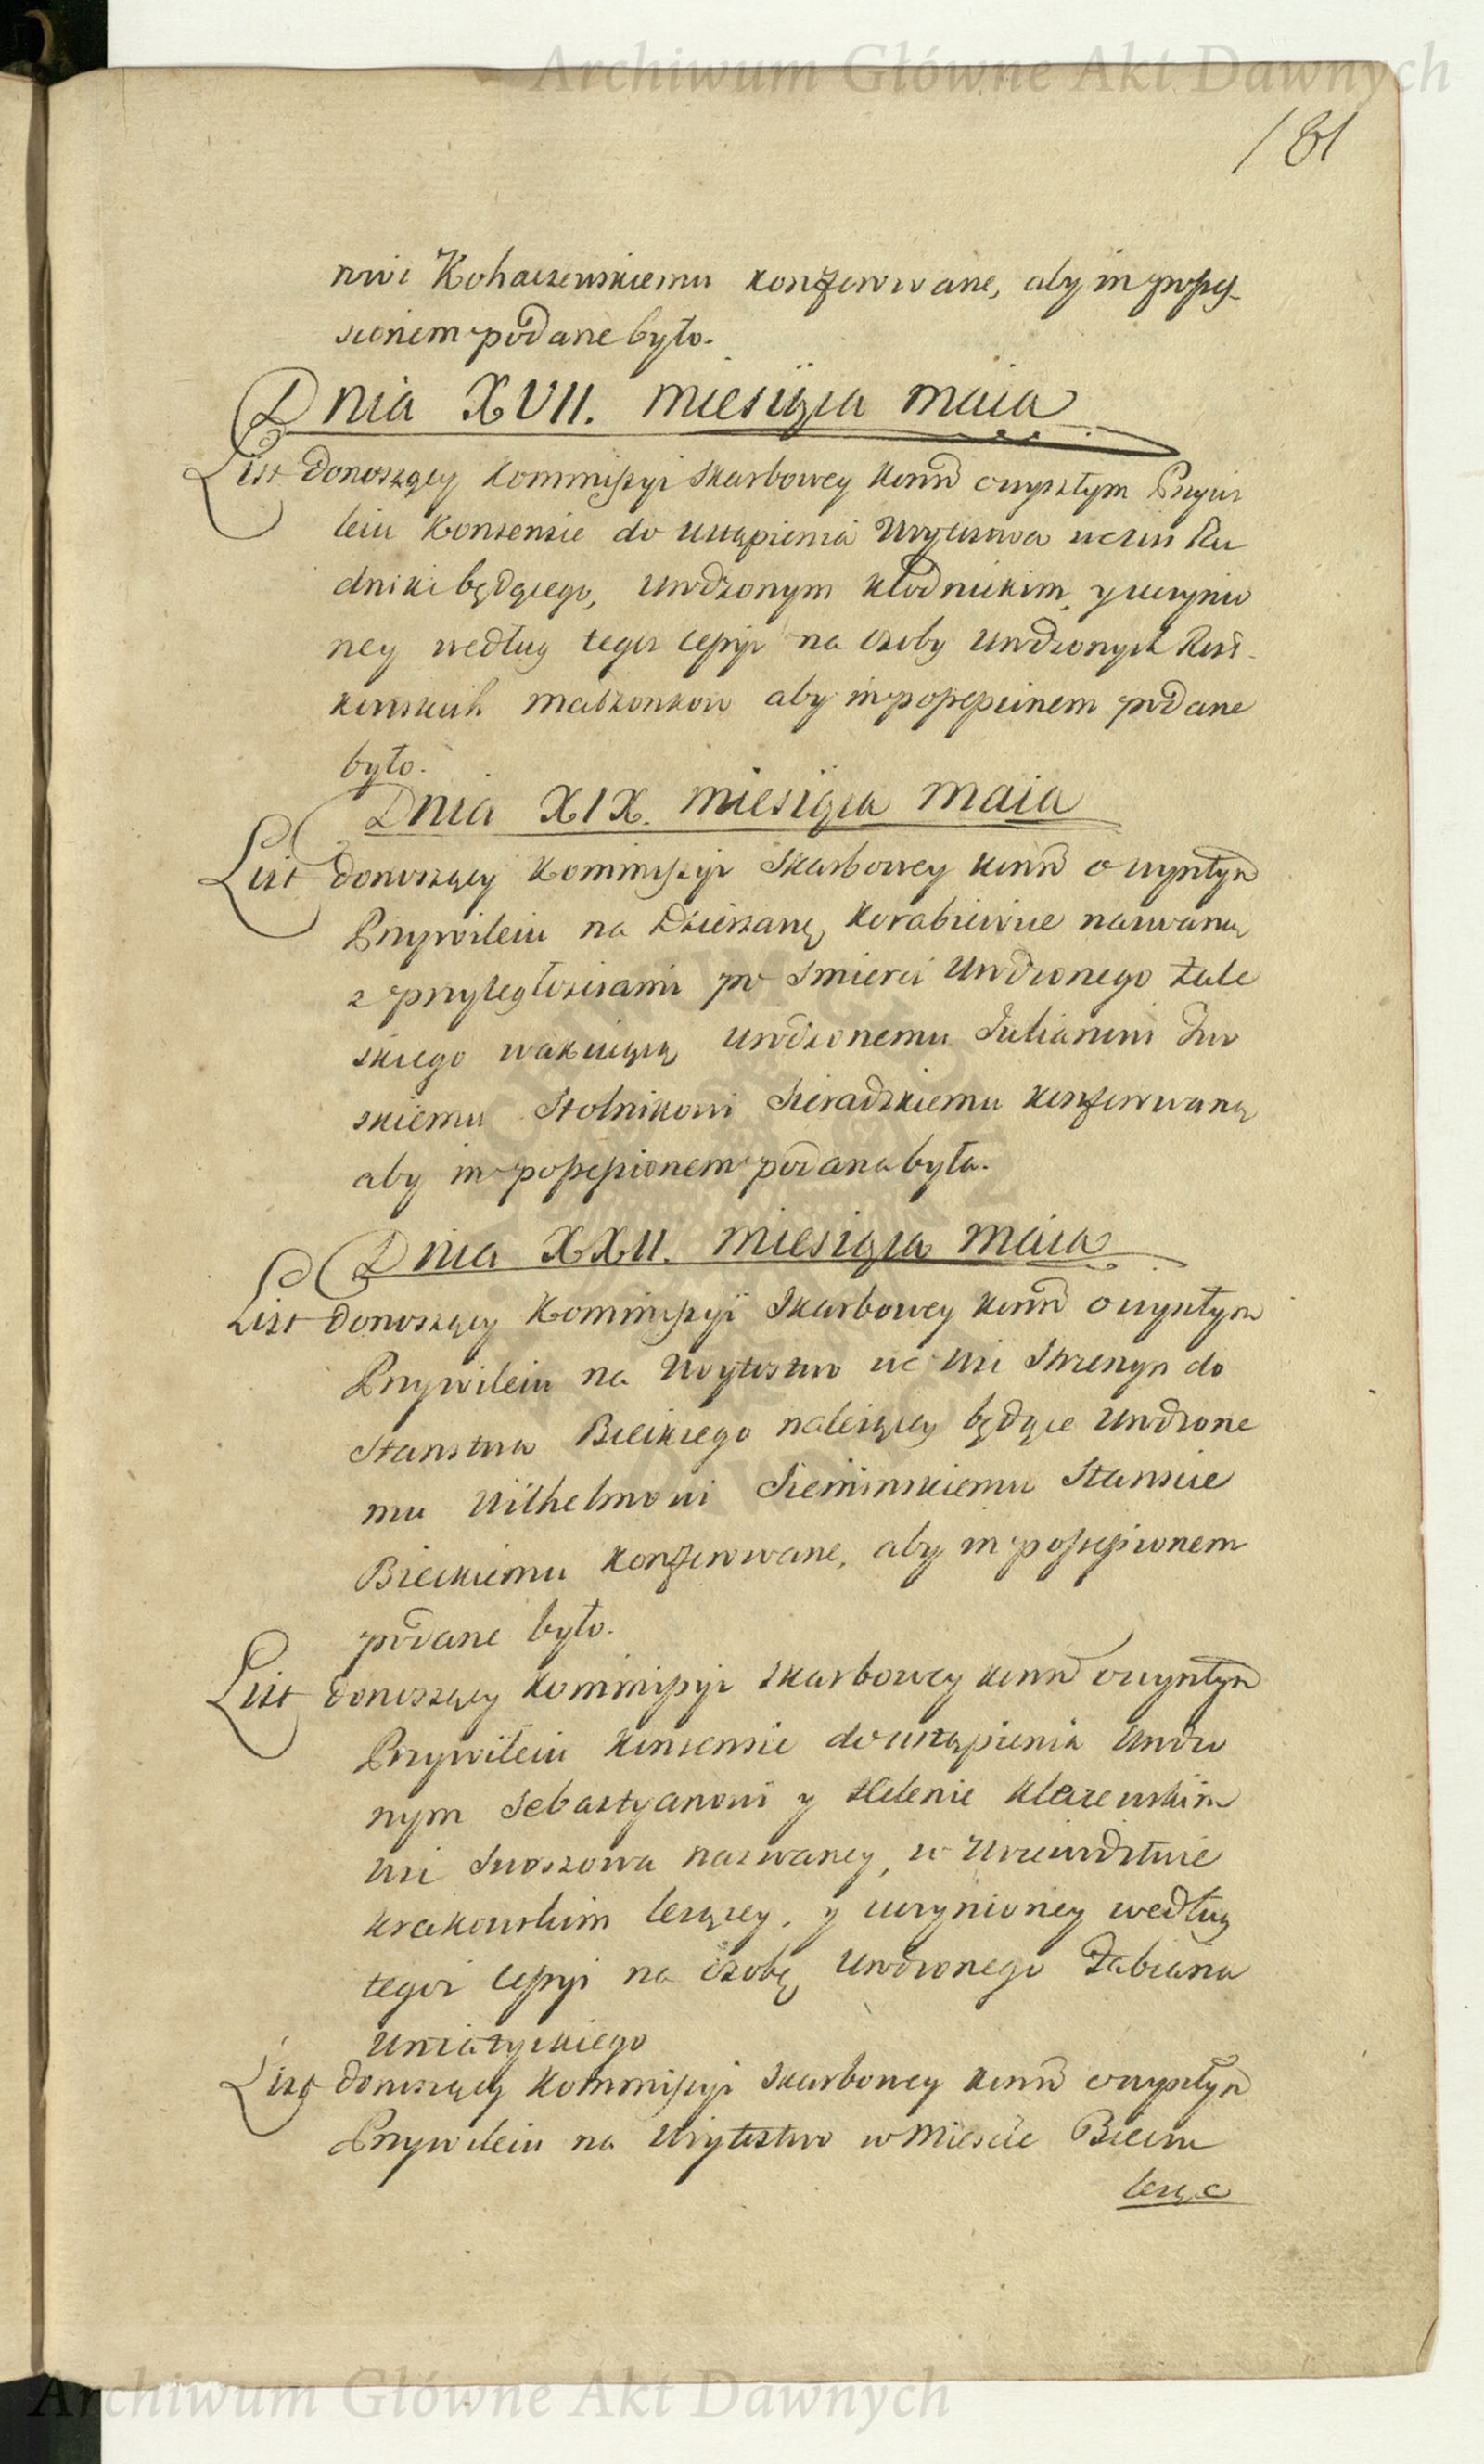 Archiwum Główne Akt Dawnych
181
nowi Kohaczewskiemu konferowane, aby in posses-
sionem podane było.
Dnia XVII. miesiąca maia
List donoszący Kommissyi Skarbowey Koron o wyszłym Przywi
leiu Konsensie do ustąpienia Woytostwa we wsi Ru
dniki będącego, Urodzonym Kłodnickim, y uczynio
ney według tegoż cessyi na osoby Urodzonych
małżonkow aby in possessionem podane
było.
Dnia XIX. miesiąca maia
List donoszący Kommissyi Skarbowey Koron o wyszłym
Przywileiu na Dzierżawę Korabiewice nazwaną
z przyległosciami po smierci Urodzonego Zale
skiego wakuiącą Urodzonemu Julianowi
skiemu Stolnikowi Sieradzkiemu konferowaną
aby in possessionem podana była.
Dnia XXII. miesiąca maia
List donoszący Kommissyi Skarbowey Koron o wyszłym
Przywileiu na Woytostwo we wsi Strzenżyn do
Starostwa Bieckiego należącey będące Urodzone
mu Wilhelmowi Sieminskiemu Staroscie
Bieckiemu konferowane, aby in possessionem
podane było.
List donoszący Kommissyi Skarbowey Koron o wyszłym
Przywileiu konsensie do ustąpienia Urodzo
nym Sebastyanowi y Helenie Klezewskim
wsi Swoszowa nazwaney, w Woiewodztwie
Krakowskim leżącey, y uczynioney według
tegoż cessyi na osobę Urodzonego Fabiana
Uniatyckiego
List donoszący Kommissyi Skarbowey Koron o wyszłym
Przywileiu na Woytostwo w Miescie Bieczu
leżące
Archiwum Główne Akt Dawnych